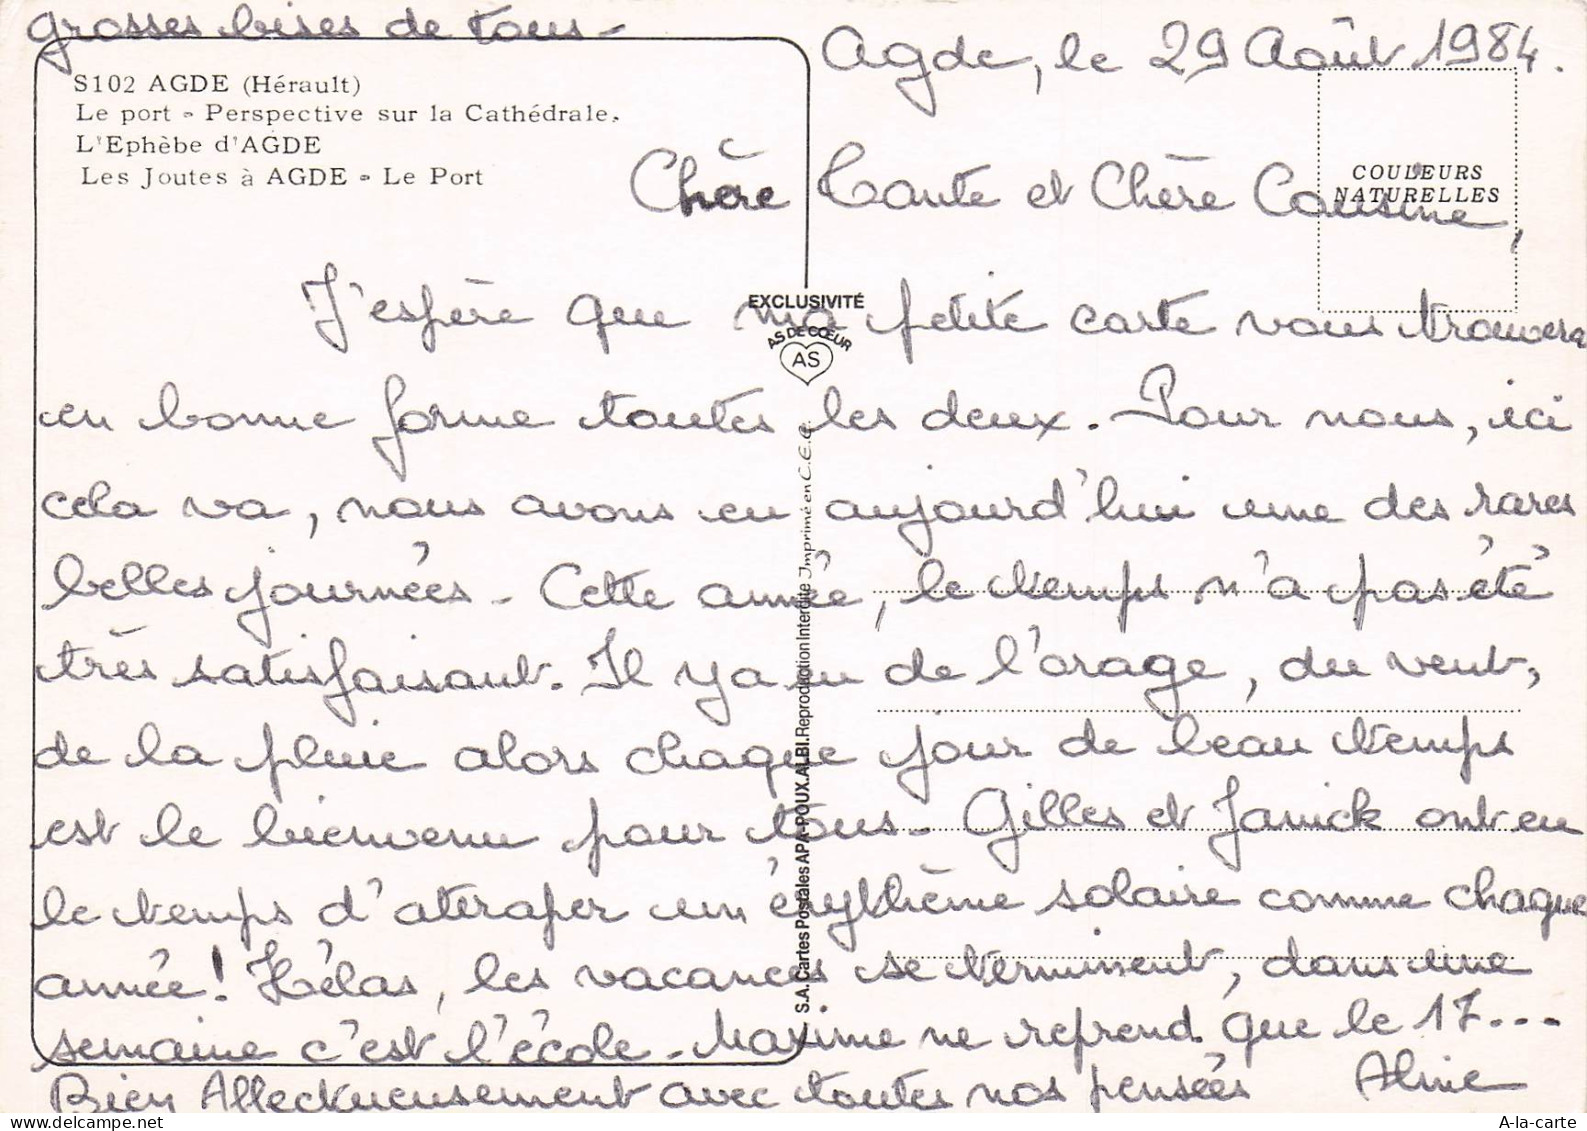 grosses bises de tous -
S102 AGDE (Hérault)
Le port - Perspective sur la Cathédrale.
L'Ephèbe d'AGDE
Les Joutes à AGDE - Le Port
Agde, le 29 Août 1984.
COULEURS
NATURELLES
Chère Tante et Chère Cousine,
EXCLUSIVITÉ
AS DE CŒUR
AS
J'espère que ma petite carte vous trouvera
en bonne forme toutes les deux. Pour nous, ici
cela va, nous avons eu aujourd'hui une des rares
belles journées - Cette année, le temps n'a pas été
très satisfaisant. Il y a eu de l'orage, du vent,
de la pluie alors chaque jour de beau temps
est le bienvenu pour tous - Gilles et Janick ont eu
le temps d'attraper un érythème solaire comme chaque
année ! Hélas, les vacances se terminent, dans une
semaine c'est l'école - Maxime ne reprend que le 17...
Bien Affectueusement avec toutes nos pensées Aline
S.A. Cartes Postales APA-POUX. ALBI. Reproduction Interdite Imprimé en C.E.E.
A-la-carte